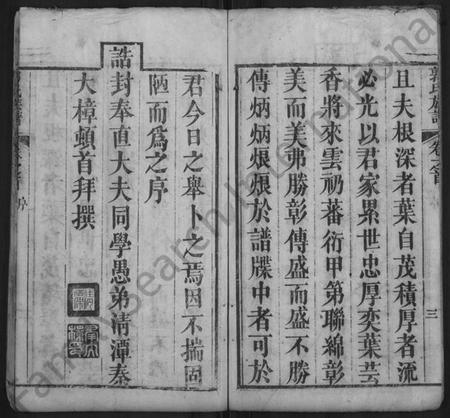 且夫根深者葉自茂積厚者流
必光以君家累世忠厚奕葉芸
香將來雲礽蕃衍甲第聯綿彰
美而美弗勝彰傳盛而盛不勝
傳炳炳烺烺於譜牒中者可於
君今日之舉卜之焉因不揣固
陋而為之序
誥封奉直大夫同學愚弟清潭秦
大樟頓首拜撰
氏族譜
卷之首
三
序
FamilySearch International